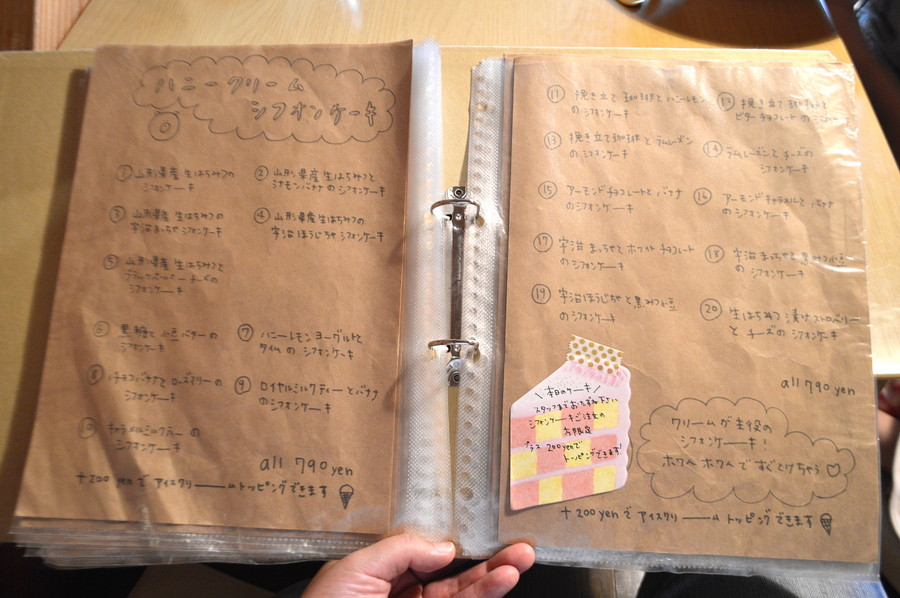 ハニークリーム
シフォンケーキ
① 山形県産生はちみつの
シフォンケーキ
② 山形県産生はちみつと
シナモンバナナのシフォンケーキ
③ 山形県産生はちみつの
宇治まっちゃシフォンケーキ
④ 山形県産生はちみつの
宇治ほうじちゃシフォンケーキ
⑤ 山形県産生はちみつと
チーズの
シフォンケーキ
⑥ 黒糖と小豆バターの
シフォンケーキ
⑦ ハニーレモンヨーグルトと
タイムのシフォンケーキ
⑧ バナナとローズマリーの
シフォンケーキ
⑨ ロイヤルミルクティーとバナナ
のシフォンケーキ
⑩ キャラメルミルクティーの
シフォンケーキ
all 790 yen
+200yenでアイスクリームトッピングできます
⑪ 挽き立て珈琲とハニーレモン
のシフォンケーキ
⑫ 挽き立て珈琲と
ビターチョコレートの
⑬ 挽き立て珈琲とラムレーズン
のシフォンケーキ
⑭ ラムレーズンとチーズの
シフォンケーキ
⑮ アーモンドチョコレートとバナナ
のシフォンケーキ
⑯ アーモンドキャラメルとバナナ
のシフォンケーキ
⑰ 宇治まっちゃとホワイトチョコレート
のシフォンケーキ
⑱ 宇治まっちゃと黒みつ小豆
のシフォンケーキ
⑲ 宇治ほうじちゃと黒みつ小豆
のシフォンケーキ
⑳ 生はちみつ漬けストロベリー
とチーズのシフォンケーキ
all 790 yen
\ 本日のケーキ /
スタッフまでおたずね下さい
シフォンケーキご注文の
お客様限定
プラス200yenで
トッピングできます!
クリームが主役の
シフォンケーキ!
ホワホワですぐとけちゃう♡
+200yenでアイスクリームトッピングできます